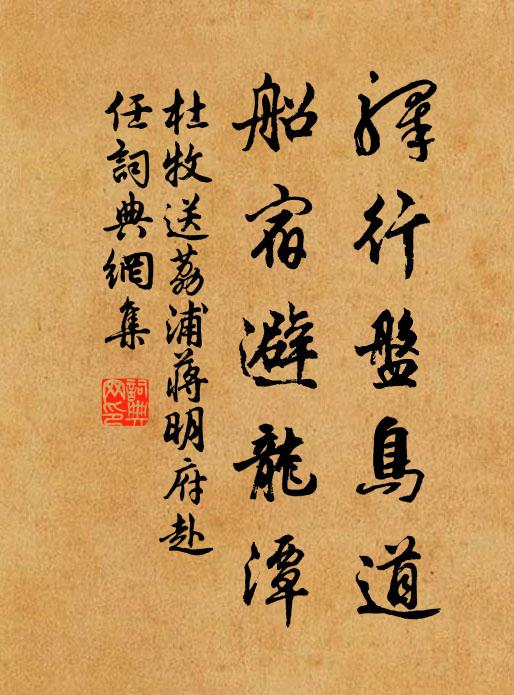 驛行盤鳥道
船宿避龍潭
杜牧送荔浦蔣明府赴
任詞典網集
詞典
网印